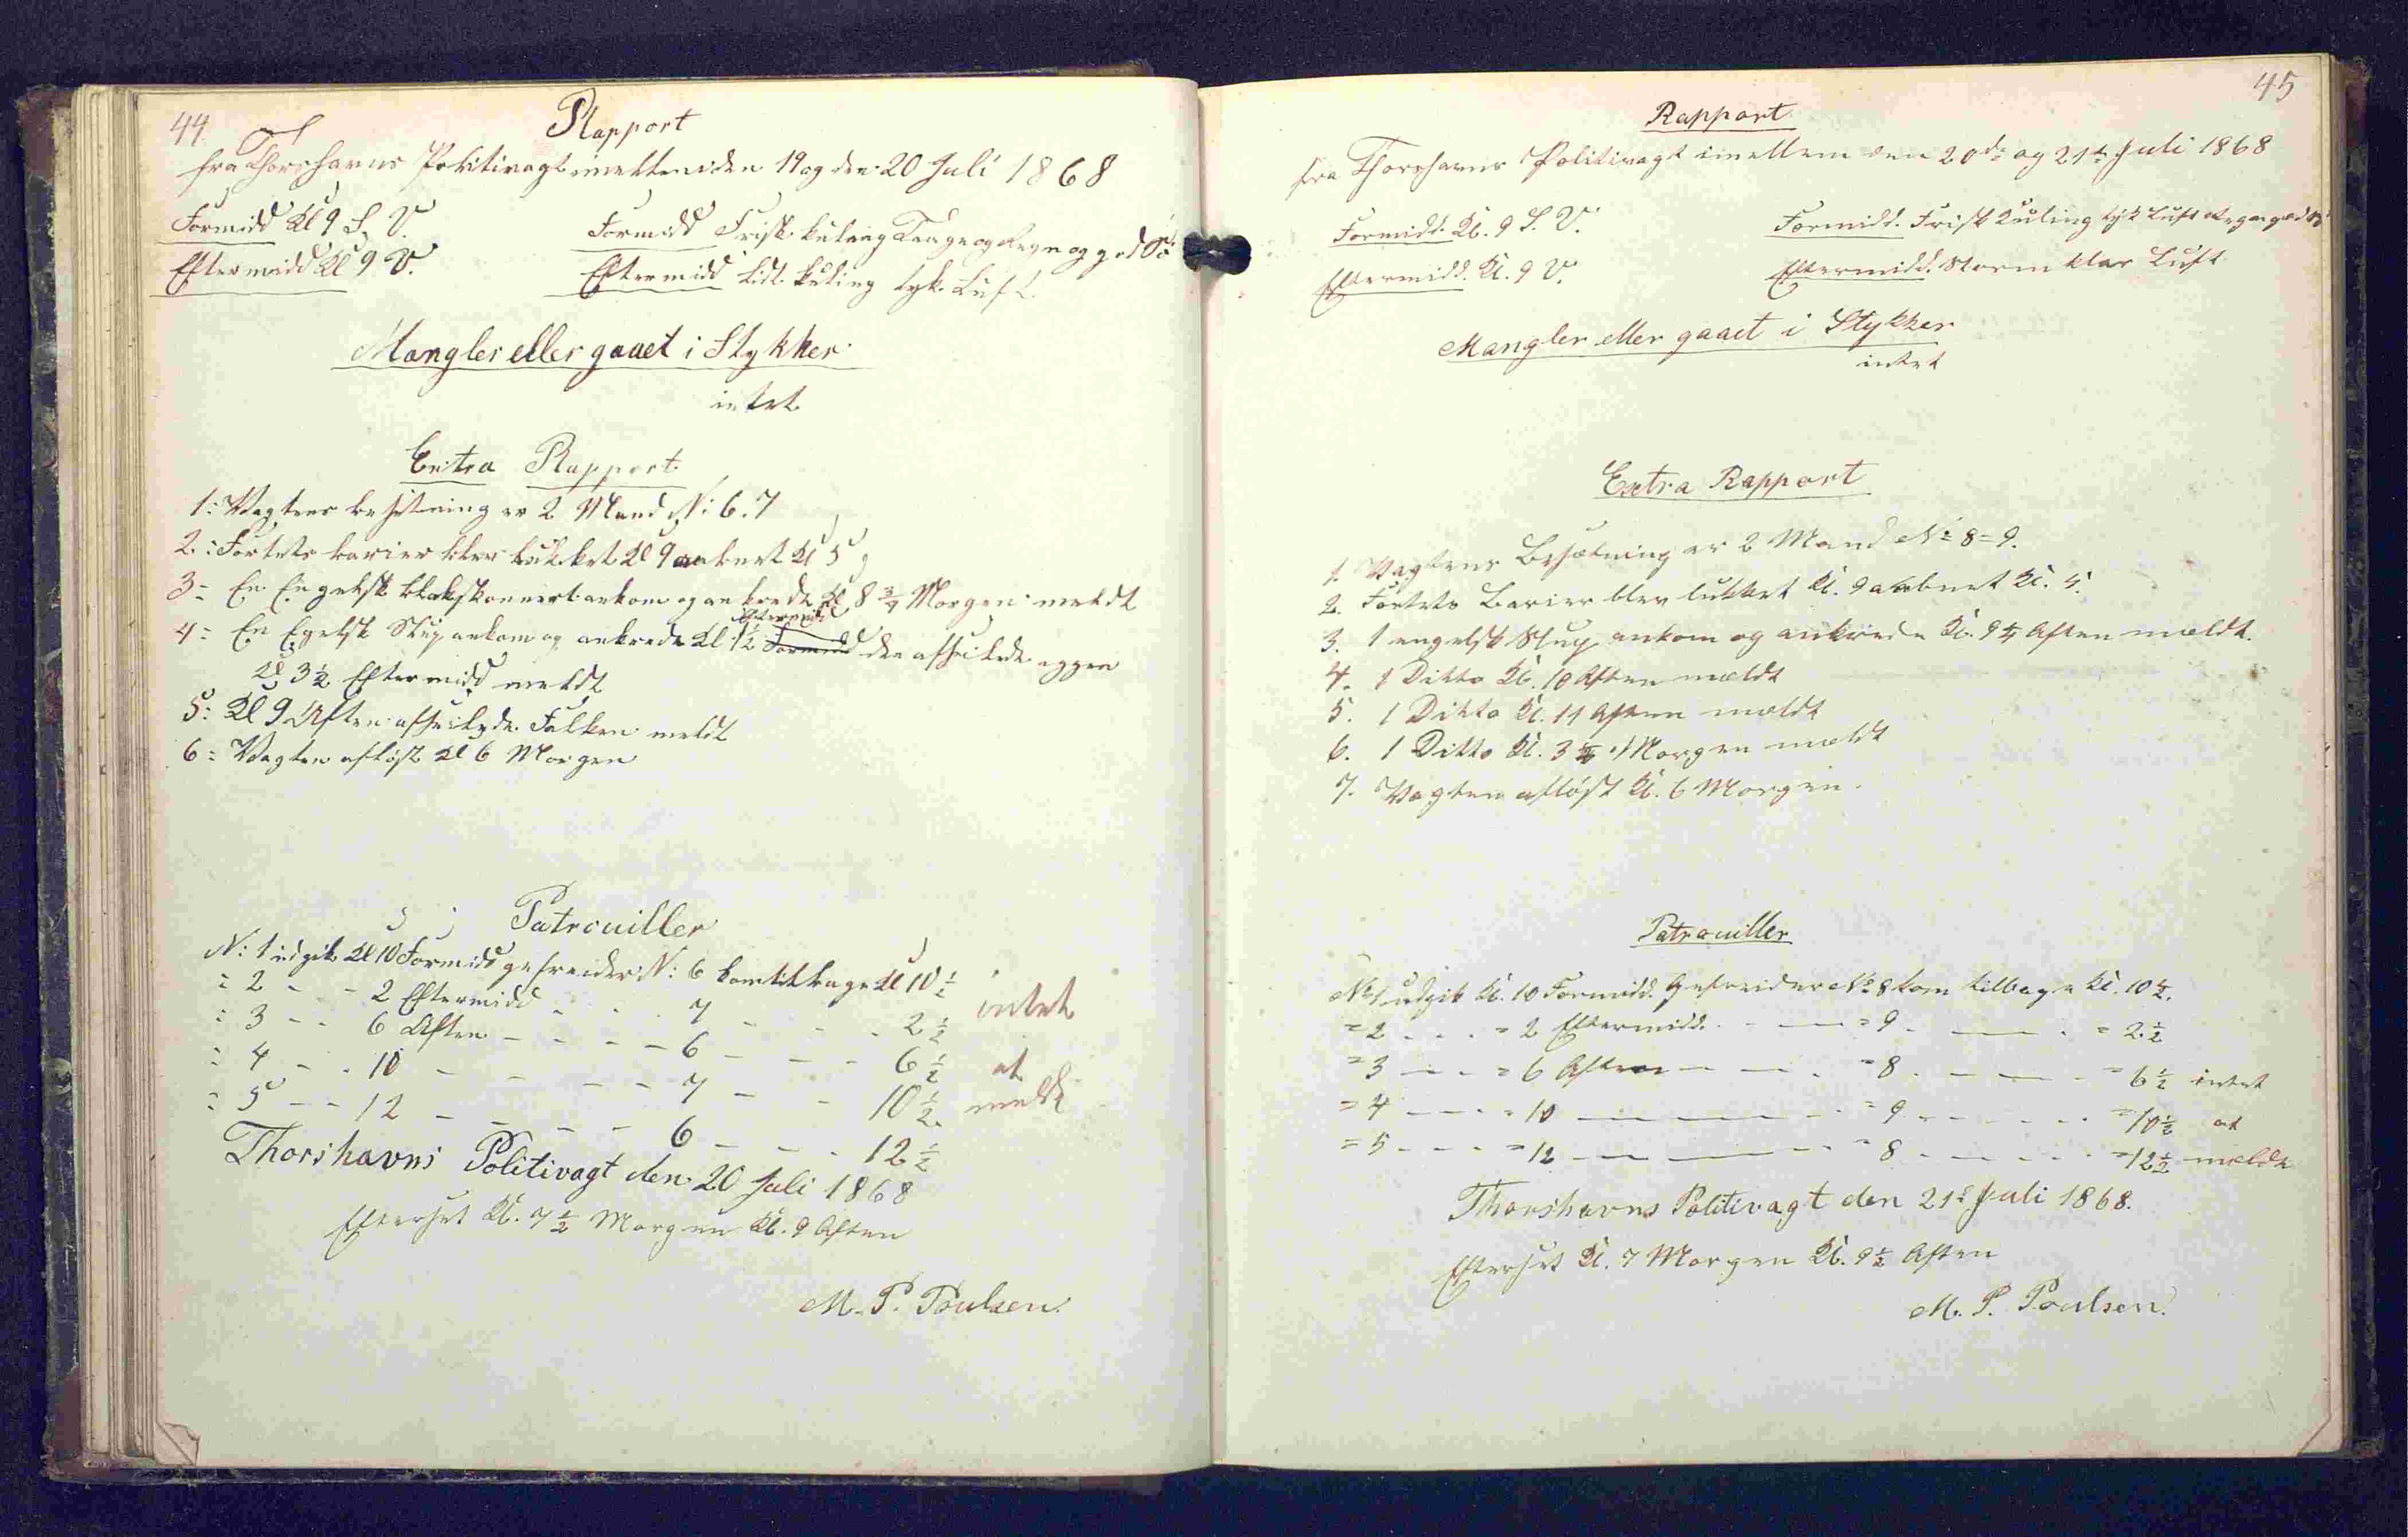 44.
Rapport
fra Thorshavns Politivagt imellem den 19 og den 20 Juli 1868
Formidd Kl 9 S. V.
Eftermidd Kl 9 V.
Formidd Frisk kuling Taage og Regn og god
Eftermidd Lidt kuling tyk Luft.
Mangler eller gaaet i Stykker
intet
Extra Rapport
1: Vagtens besetning er 2 Mand N: 6. 7
2: Fortets barier blev lukket Kl 9 aabnet Kl 5
3= En Engelsk Slupskonnert ankom og ankrede Kl 8 3/4 Morgen meldt
4= En Egelsk Slup ankom og ankrede Kl 1 1/2 Formidd Eftermidd den afseilede iggen
Kl 3 1/2 Eftermidd meldt
5: Kl 9 Aften afseilede Falken meldt
6= Vagten afløst Kl 6 Morgen
Patrouiller
N: 1 udgik Kl 10 Formidd gefreider N: 6 kom tilbage Kl 10 1/2
= 2 - - 2 Eftermidd - - - 7 - - - 2 1/2 intet
= 3 - - 6 Aften - - - - 6 - - - 6 1/2 at
= 4 - - 10 - - - - 7 - - 10 1/2 meldt
= 5 - - 12 - - - - 6 - - - 12 1/2
Thorshavns Politivagt den 20 Juli 1868
Efterset Kl. 7 1/2 Morgen Kl. 9 Aften
M. P. Poulsen.
45
Rapport
fra Thorshavns Politivagt imellem den 20de og 21de Juli 1868
Formidd. Kl. 9 S. V.
Eftermidd. Kl. 9 V.
Formidd. Frisk Kuling tyk Luft Regn
Eftermidd. Storm klar Luft
Mangler eller gaaet i Stykker
intet
Extra Rapport
1. Vagtens Besætning er 2 Mand No 8=9.
2. Fortets Barier blev lukket Kl. 9 aabnet Kl. 5.
3. 1 engelsk Slup ankom og ankrede Kl. 9 1/4 Aften mældt.
4. 1 Ditto Kl. 10 Aften mældt
5. 1 Ditto Kl. 11 Aften mældt
6. 1 Ditto Kl. 3 Morgen mældt
7. Vagten afløst Kl. 6 Morgen.
Patrouiller
No 1 udgik Kl. 10 Formidd. Gefreider No 8 kom tilbage Kl. 10 1/2.
= 2 - - - = 2 Eftermidd. - - = 9 - - - = 2 1/2
= 3 - - - = 6 Aften - - - = 8 - - - = 6 1/2 intet
= 4 - - - = 10 - - - = 9 - - - = 10 1/2 at
= 5 - - - = 12 - - - = 8 - - - = 12 1/2 mældt
Thorshavns Politivagt den 21de Juli 1868.
Efterset Kl. 7 Morgen Kl. 9 1/2 Aften
M. P. Poulsen.